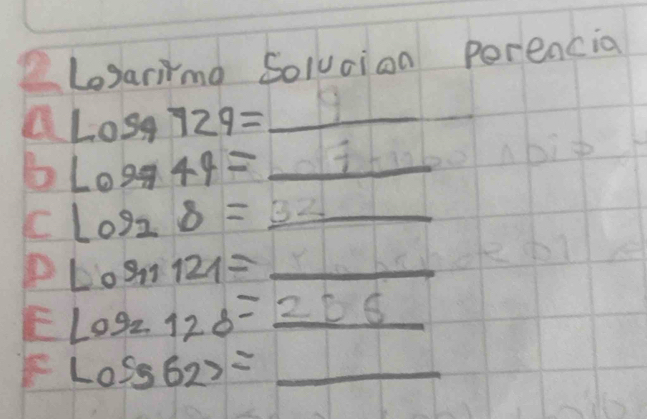 2 Logaritmo Solucion Potencia
a Log9 729 = 9
b Log7 49 = 7
C Log2 8 = 32
D Log11 121 =
E Log2 128 = 256
F Log5 625 =